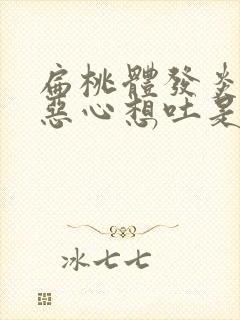 扁桃體發炎
惡心想吐是
冰七七